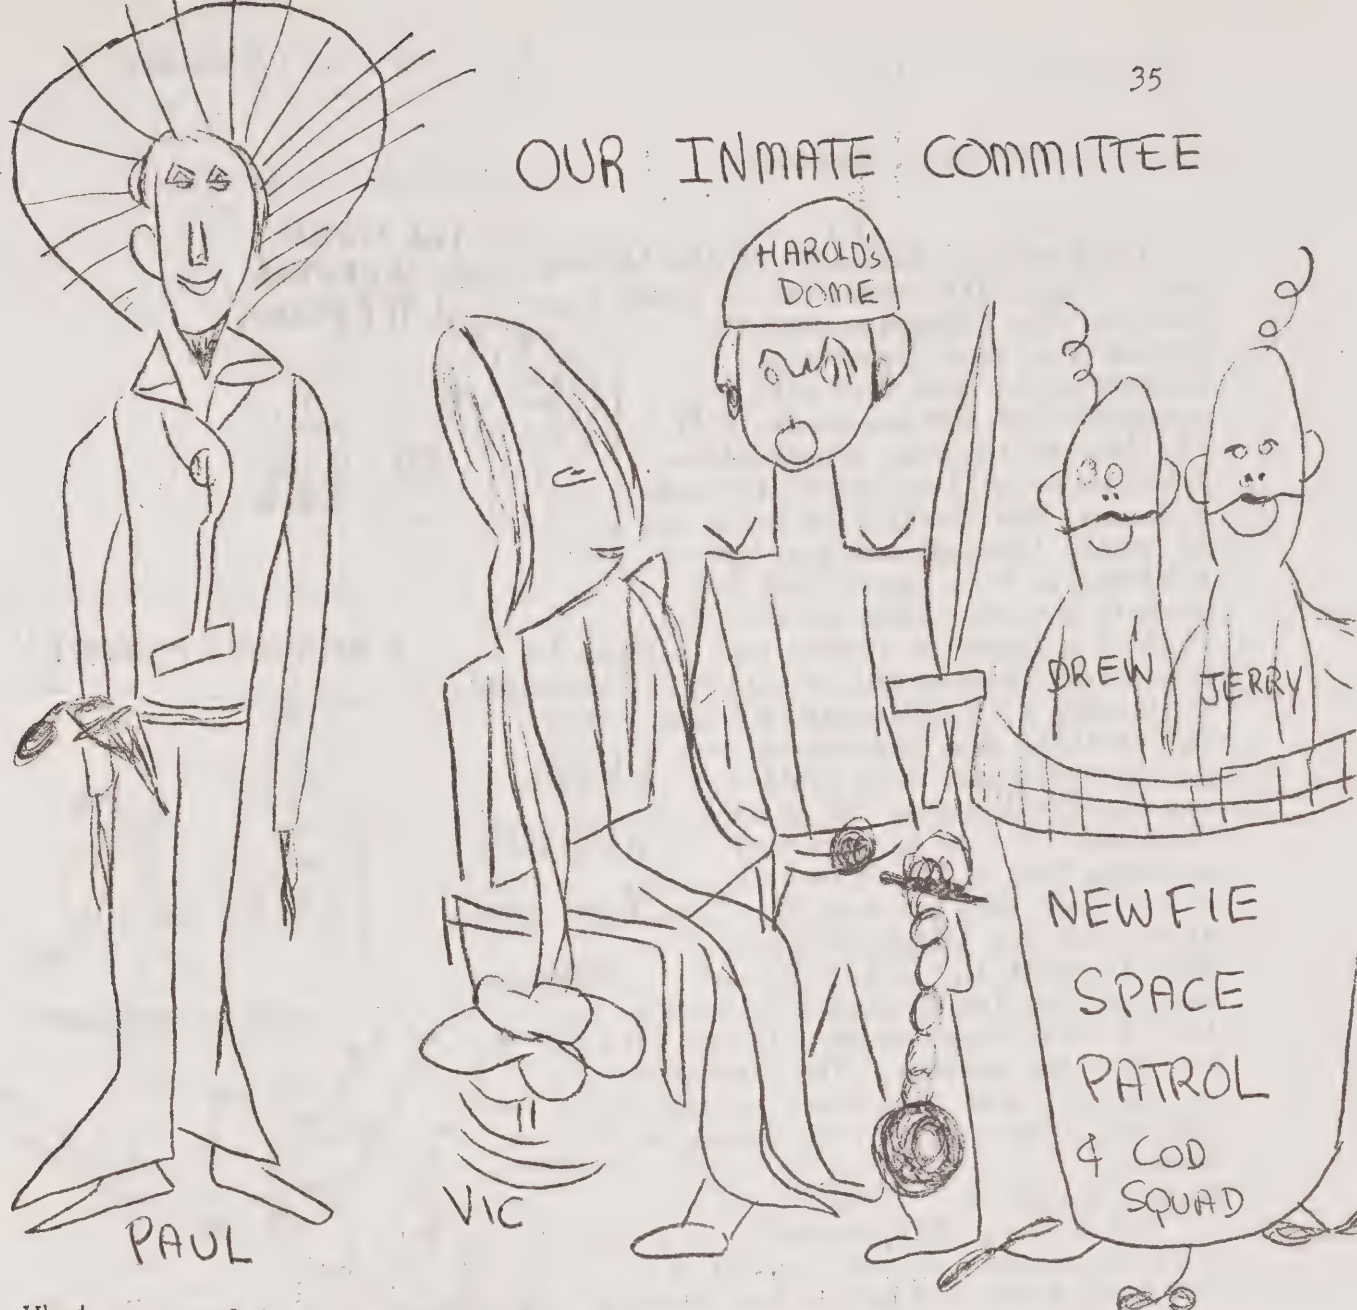 35
OUR INMATE COMMITTEE
HAROLD's
DOME
DREW
JERRY
NEWFIE
SPACE
PATROL
& COD
SQUAD
VIC
PAUL